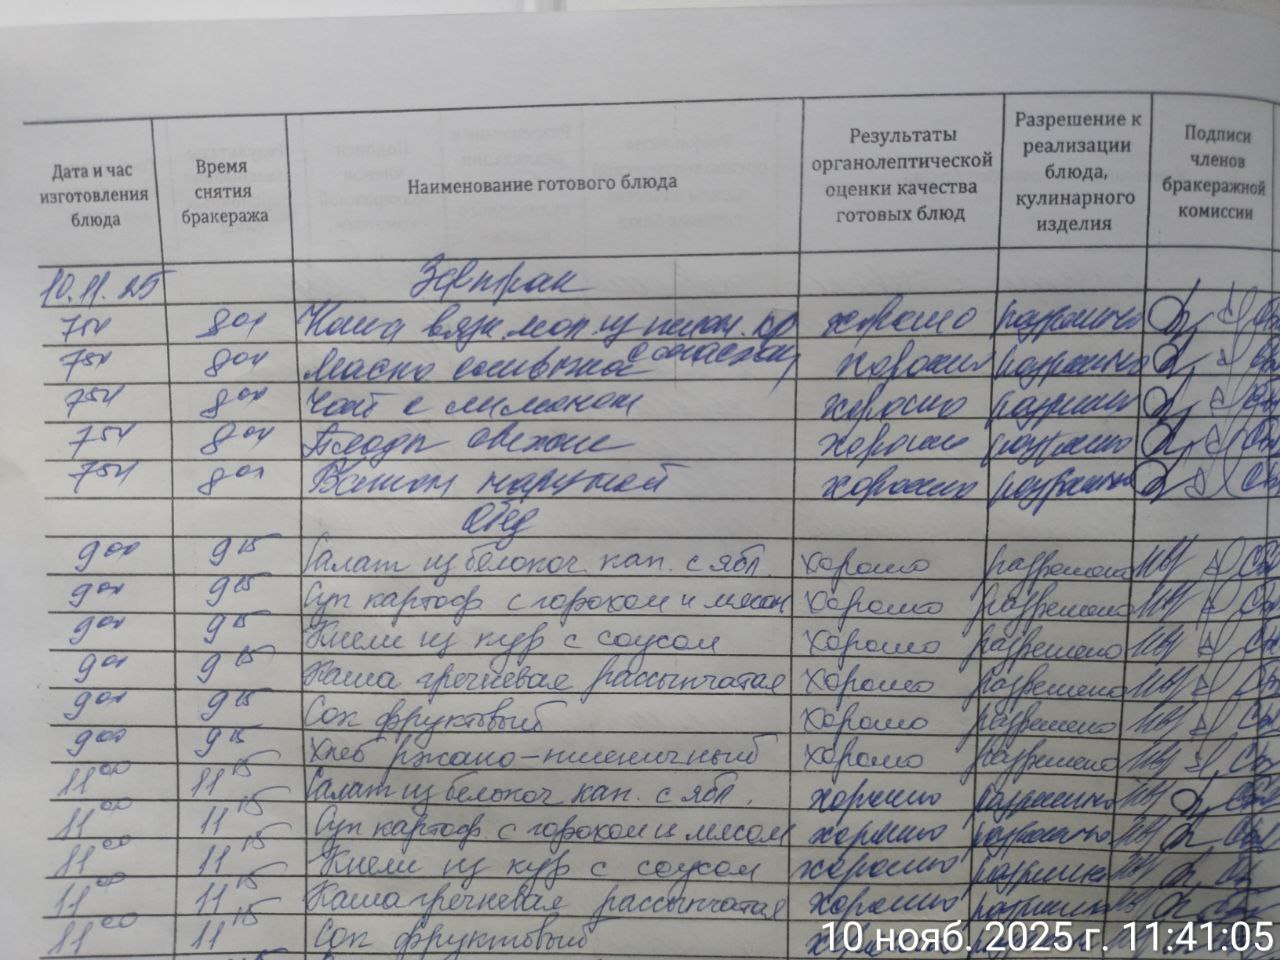 Дата и час изготовления блюда
Время снятия бракеража
Наименование готового блюда
Результаты органолептической оценки качества готовых блюд
Разрешение к реализации блюда, кулинарного изделия
Подписи членов бракеражной комиссии
10.11.25 Завтрак
7 50 8 00 Каша вязк. мол. из пшен. кр хорошо разрешено
с маслом
7 50 8 00 Масло сливочное хорошо разрешено
7 50 8 00 Чай с лимоном хорошо разрешено
7 50 8 00 Плоды свежие хорошо разрешено
7 50 8 00 Батон нарезной хорошо разрешено
Обед
9 00 9 15 Салат из белокоч. кап. с ябл. хорошо разрешено
9 00 9 15 Суп картоф. с горохом и мясом хорошо разрешено
9 00 9 15 Кнели из кур с соусом хорошо разрешено
9 00 9 15 Каша гречневая рассыпчатая хорошо разрешено
9 00 9 15 Сок фруктовый хорошо разрешено
9 00 9 15 Хлеб ржано-пшеничный хорошо разрешено
11 00 11 15 Салат из белокоч кап. с ябл. хорошо разрешено
11 00 11 15 Суп картоф. с горохом и мясом хорошо разрешено
11 00 11 15 Кнели из кур с соусом хорошо разрешено
11 00 11 15 Каша гречневая рассыпчатая хорошо разрешено
11 00 11 15 Сок фруктовый хорошо
10 нояб. 2025 г. 11:41:05